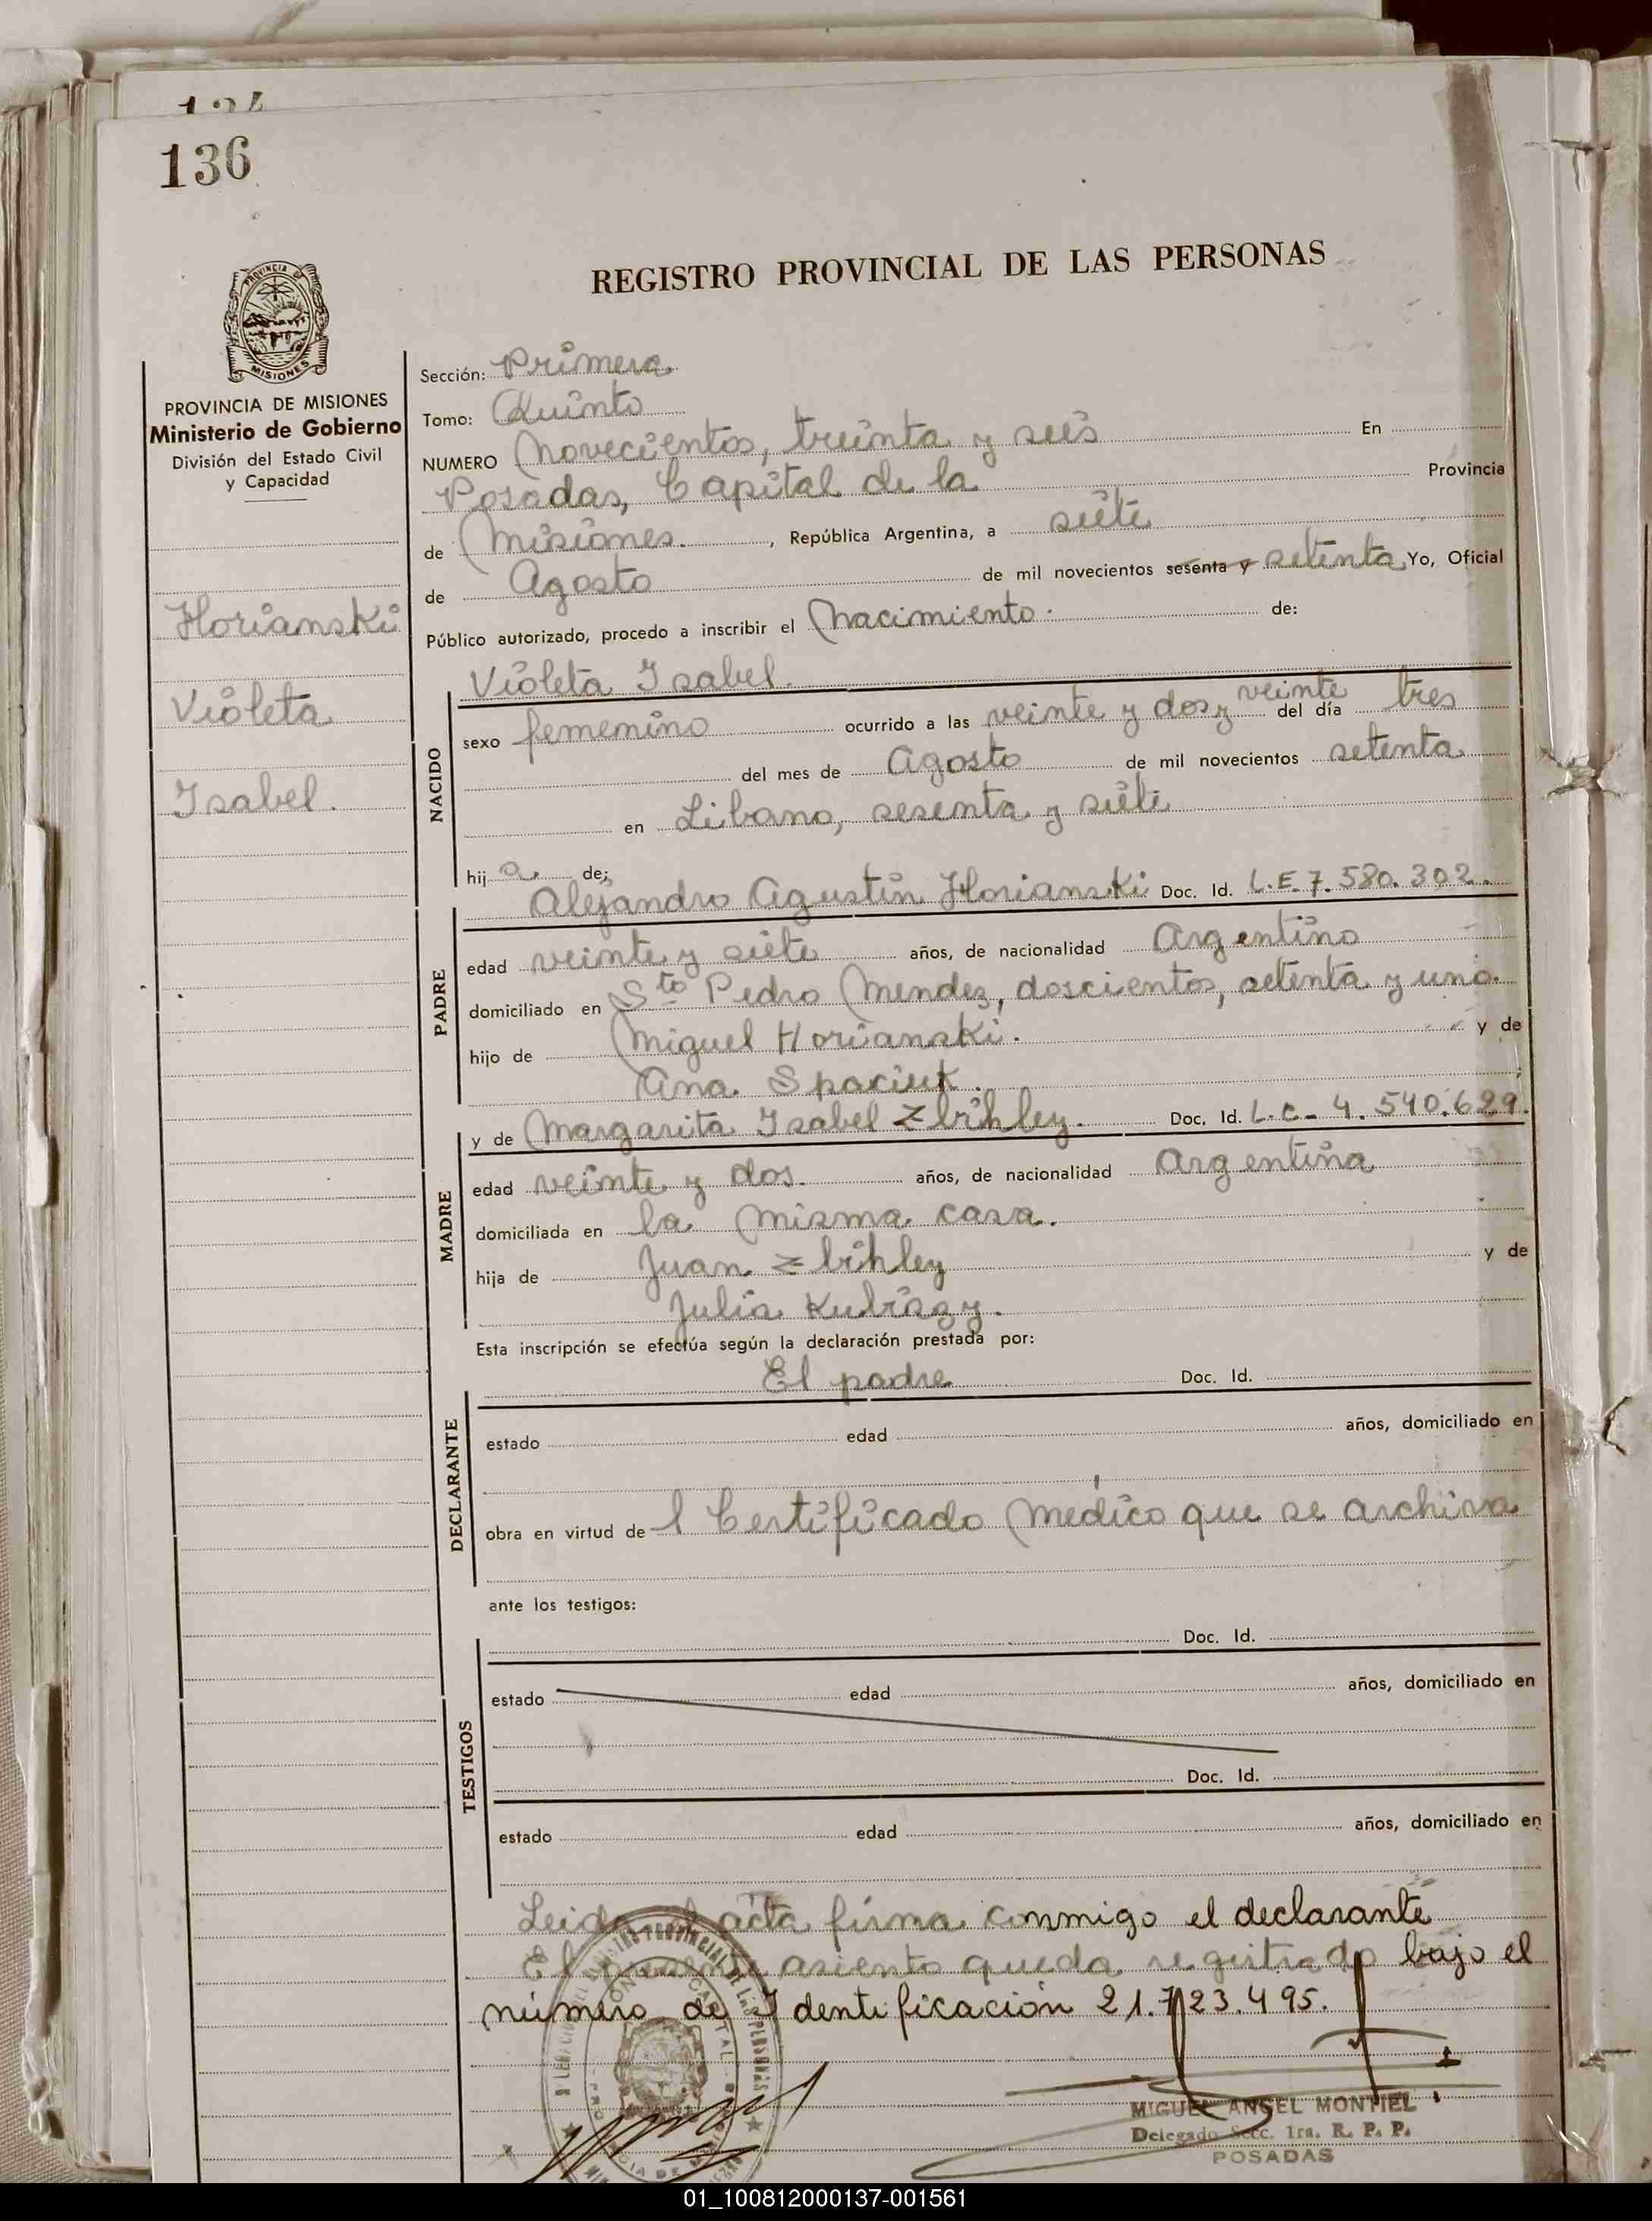 136
REGISTRO PROVINCIAL DE LAS PERSONAS
PROVINCIA DE
MISIONES
PROVINCIA DE MISIONES
Ministerio de Gobierno
División del Estado Civil
y Capacidad
Horianski
Violeta
Isabel.
Sección: Primera
Tomo: Quinto
NUMERO Novecientos, treinta y seis En
Posadas, Capital de la Provincia
de Misiones. , República Argentina, a siete
de Agosto de mil novecientos sesenta y setenta Yo, Oficial
Público autorizado, procedo a inscribir el Nacimiento. de:
Violeta Isabel.
NACIDO
sexo femenino ocurrido a las veinte y dos y veinte del día tres
del mes de Agosto de mil novecientos setenta
en Libano, sesenta y siete
hij a. de;
Alejandro Agustín Horianski Doc. Id. L.E. 7.580.302.
PADRE
edad veinte y siete años, de nacionalidad Argentino
domiciliado en Sto Pedro Mendez, doscientos, setenta y uno.
hijo de Miguel Horianski. y de
Ana. Spaciuk. ;
y de Margarita Isabel Zbihley. Doc. Id. L.C. 4.540.629.
MADRE
edad veinte y dos. años, de nacionalidad Argentina
domiciliada en la misma casa.
hija de Juan Zbihley y de
Julia
Esta inscripción se efectúa según la declaración prestada por:
El padre Doc. Id.
DECLARANTE
estado edad años, domiciliado en
obra en virtud de l Certificado Médico que se archiva
ante los testigos:
Doc. Id.
TESTIGOS
estado edad años, domiciliado en
Doc. Id.
estado edad años, domiciliado en
Leida el acta firma conmigo el declarante
El presente asiento queda registrado bajo el
número de Identificación 21.723.495.
MIGUEL ANGEL MONTIEL
Delegado Secc. 1ra. R. P. P.
POSADAS
01_100812000137-001561